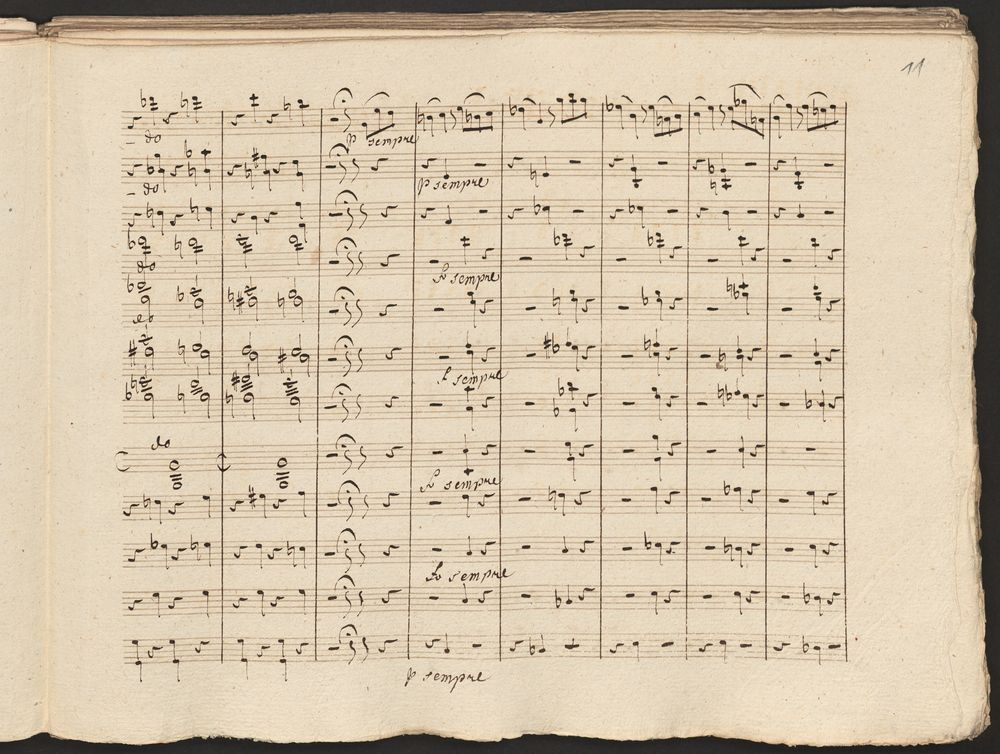 11
- do
p sempre
- do
p sempre
do
Fo sempre
do
F sempre
do
Fo sempre
Fo sempre
p sempre